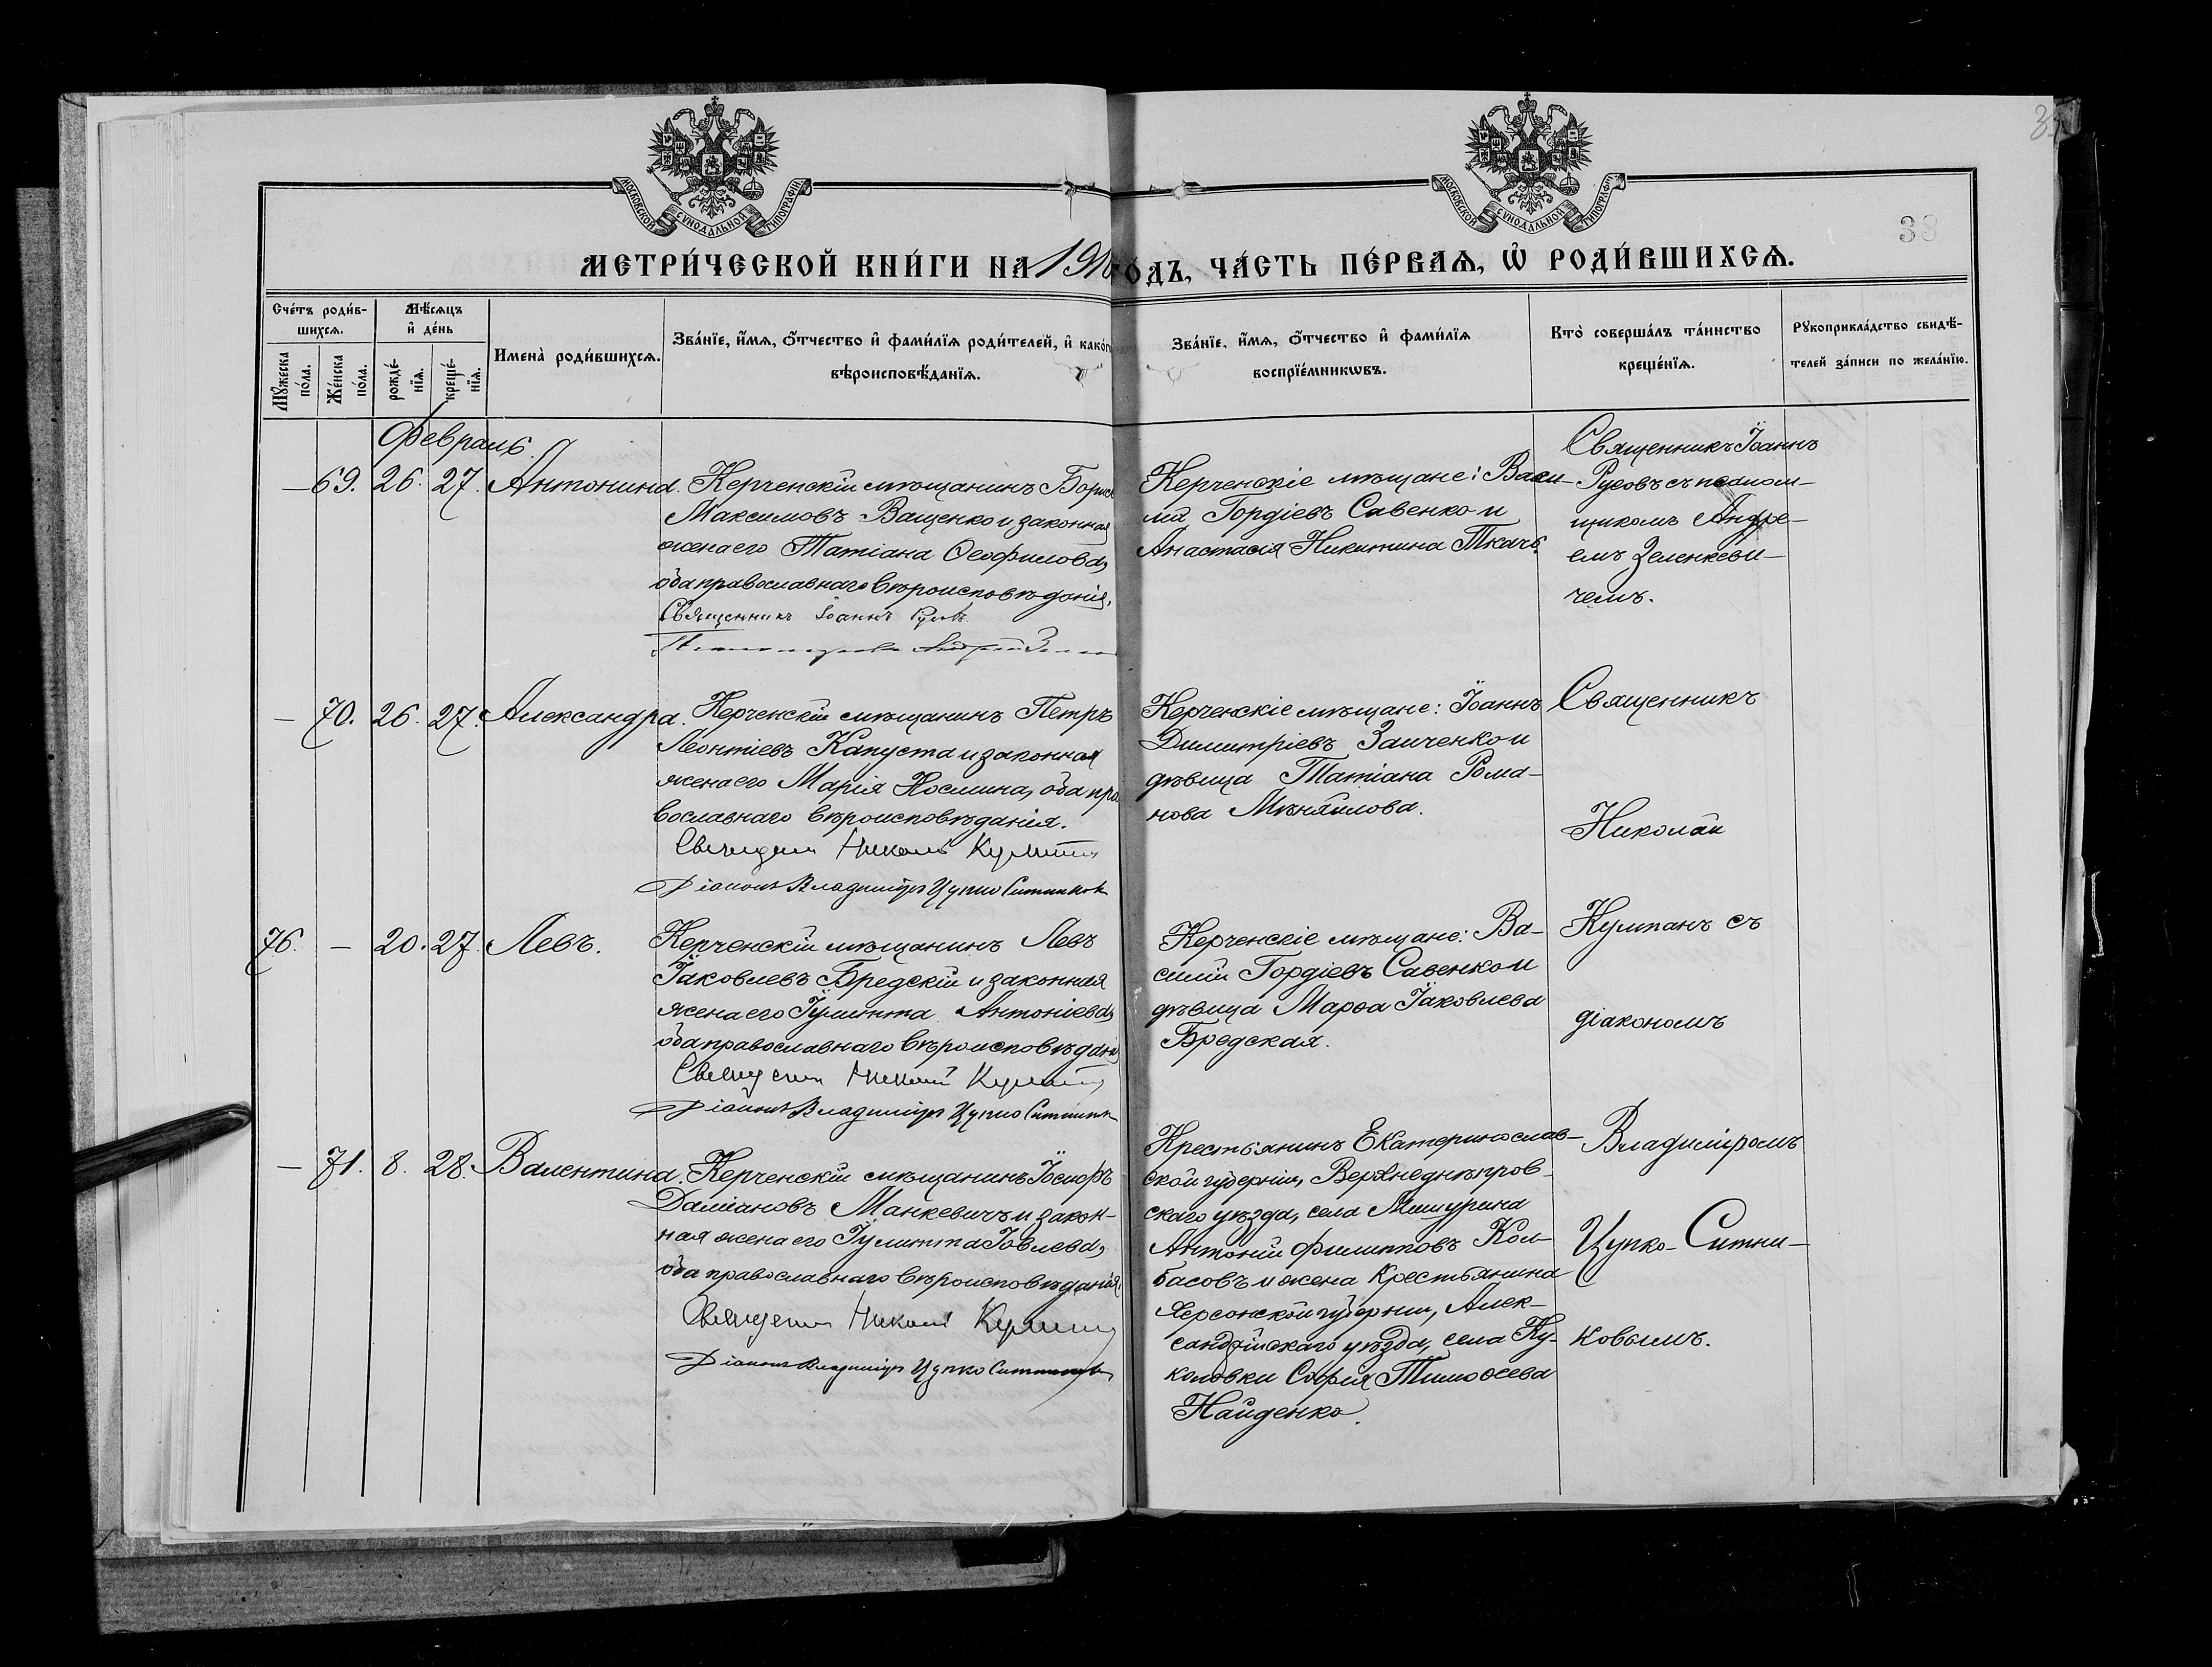 3
МОСКОВСКОЙ СУНОДАЛЬНОЙ ТИПОГРАФІИ
МОСКОВСКОЙ СУНОДАЛЬНОЙ ТИПОГРАФІИ
38
МЕТРИ́ЧЕСКОЙ КНИ́ГИ НА 1910 ГО́ДЪ, ЧА́СТЬ ПЕ́РВАѦ, Ѽ РОДИ́ВШИХСѦ.
Сче́тъ роди́в-
шихсѧ.
Мꙋжеска по́ла.
Же́нска по́ла.
Мѣ́сѧцъ
и҆ де́нь
рожде́-
нїѧ.
креще́-
нїѧ.
Имена̀ роди́вшихсѧ.
Зва́нїе, и҆́мѧ, ѻ҆́тчество и҆ фами́лїѧ роди́телей, и҆ како́гѡ
вѣроисповѣ́данїѧ.
Зва́нїе, и҆́мѧ, ѻ҆́тчество и҆ фами́лїѧ
воспрїе́мникѡвъ.
Кто̀ соверша́лъ та́инство
креще́нїѧ.
Рꙋкоприкла́дство свидѣ́-
телей за́писи по жела́нїю.
Февраль.
— 69. 26. 27. Антонина.
Керченскій мѣщанинъ Борисъ
Максимовъ Ващенко и законная
жена его Татіана Ѳеофилова,
оба православнаго вѣроисповѣданія.
Священникъ Іоаннъ Русовъ
Керченскіе мѣщане: Васи-
лій Гордіевъ Савенко и
Анастасія Никитина Ткачъ.
Священникъ Іоаннъ
Русовъ съ псаломщ-
щикомъ Андре-
емъ Зеленкеви-
чемъ.
— 70. 26. 27. Александра.
Керченскій мѣщанинъ Петръ
Леонтіевъ Капуста и законная
жена его Марія Космина, оба пра
вославнаго вѣроисповѣданія.
Священникъ Николай Кулпанъ
Діаконъ Владиміръ Цупко Ситников
Керченскіе мѣщане: Іоаннъ
Димитріевъ Заиченко и
дѣвица Татіана Рома-
нова Мѣняйлова.
Священникъ
Николай
76. — 20. 27. Левъ.
Керченскій мѣщанинъ Левъ
Іаковлевъ Бредскій и законная
жена его Іулитта Антоніева,
оба православнаго вѣроисповѣданія
Священникъ Николай Кулпанъ
Діаконъ Владиміръ Цупко Ситников
Керченскіе мѣщане: Ва-
силій Гордіевъ Савенко и
дѣвица Марѳа Іаковлева
Бредская.
Кулпанъ съ
діакономъ
— 71. 8. 28. Валентина.
Керченскій мѣщанинъ Іосифъ
Даміановъ Манкевичъ и закон-
ная жена его Іулитта Іовлева,
оба православнаго вѣроисповѣданія.
Священникъ Николай Кулпанъ
Діаконъ Владиміръ Цупко Ситников
Крестьянинъ Екатеринослав-
ской губерніи, Верхнеднѣпров-
скаго уѣзда, села Мишурина
Антоній Филипповъ Кол-
басовъ и жена крестьянина
Херсонской губерніи, Алек-
сандрійскаго уѣзда, села Ку-
коловки Софія Тимоѳеева
Найденко.
Владиміромъ
Цупко-Ситни-
ковымъ.